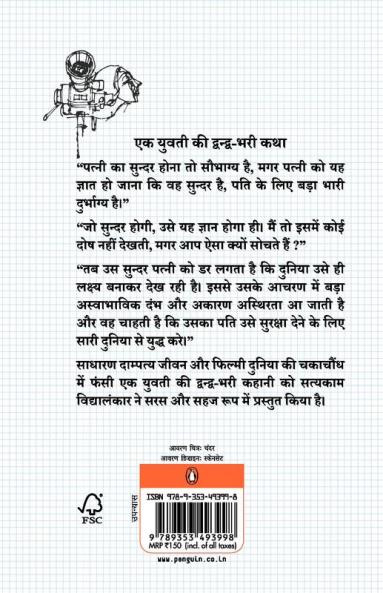 एक युवती की द्वन्द्व-भरी कथा
“पत्नी का सुन्दर होना तो सौभाग्य है, मगर पत्नी को यह
ज्ञात हो जाना कि वह सुन्दर है, पति के लिए बड़ा भारी
दुर्भाग्य है।”
“जो सुन्दर होगी, उसे यह ज्ञान होगा ही। मैं तो इसमें कोई
दोष नहीं देखती, मगर आप ऐसा क्यों सोचते हैं ?”
“तब उस सुन्दर पत्नी को डर लगता है कि दुनिया उसे ही
लक्ष्य बनाकर देख रही है। इससे उसके आचरण में बड़ा
अस्वाभाविक दंभ और अकारण अस्थिरता आ जाती है
और वह चाहती है कि उसका पति उसे सुरक्षा देने के लिए
सारी दुनिया से युद्ध करे।”
साधारण दाम्पत्य जीवन और फिल्मी दुनिया की चकाचौंध
में फंसी एक युवती की द्वन्द्व-भरी कहानी को सत्यकाम
विद्यालंकार ने सरस और सहज रूप में प्रस्तुत किया है।
आवरण चित्रः चंदर
आवरण डिज़ाइनः स्केनसेट
ISBN 978-9-353-49399-8
FSC
उपन्यास
9 789353 493998
MRP ₹150 (incl. of all taxes)
www.penguin.co.in